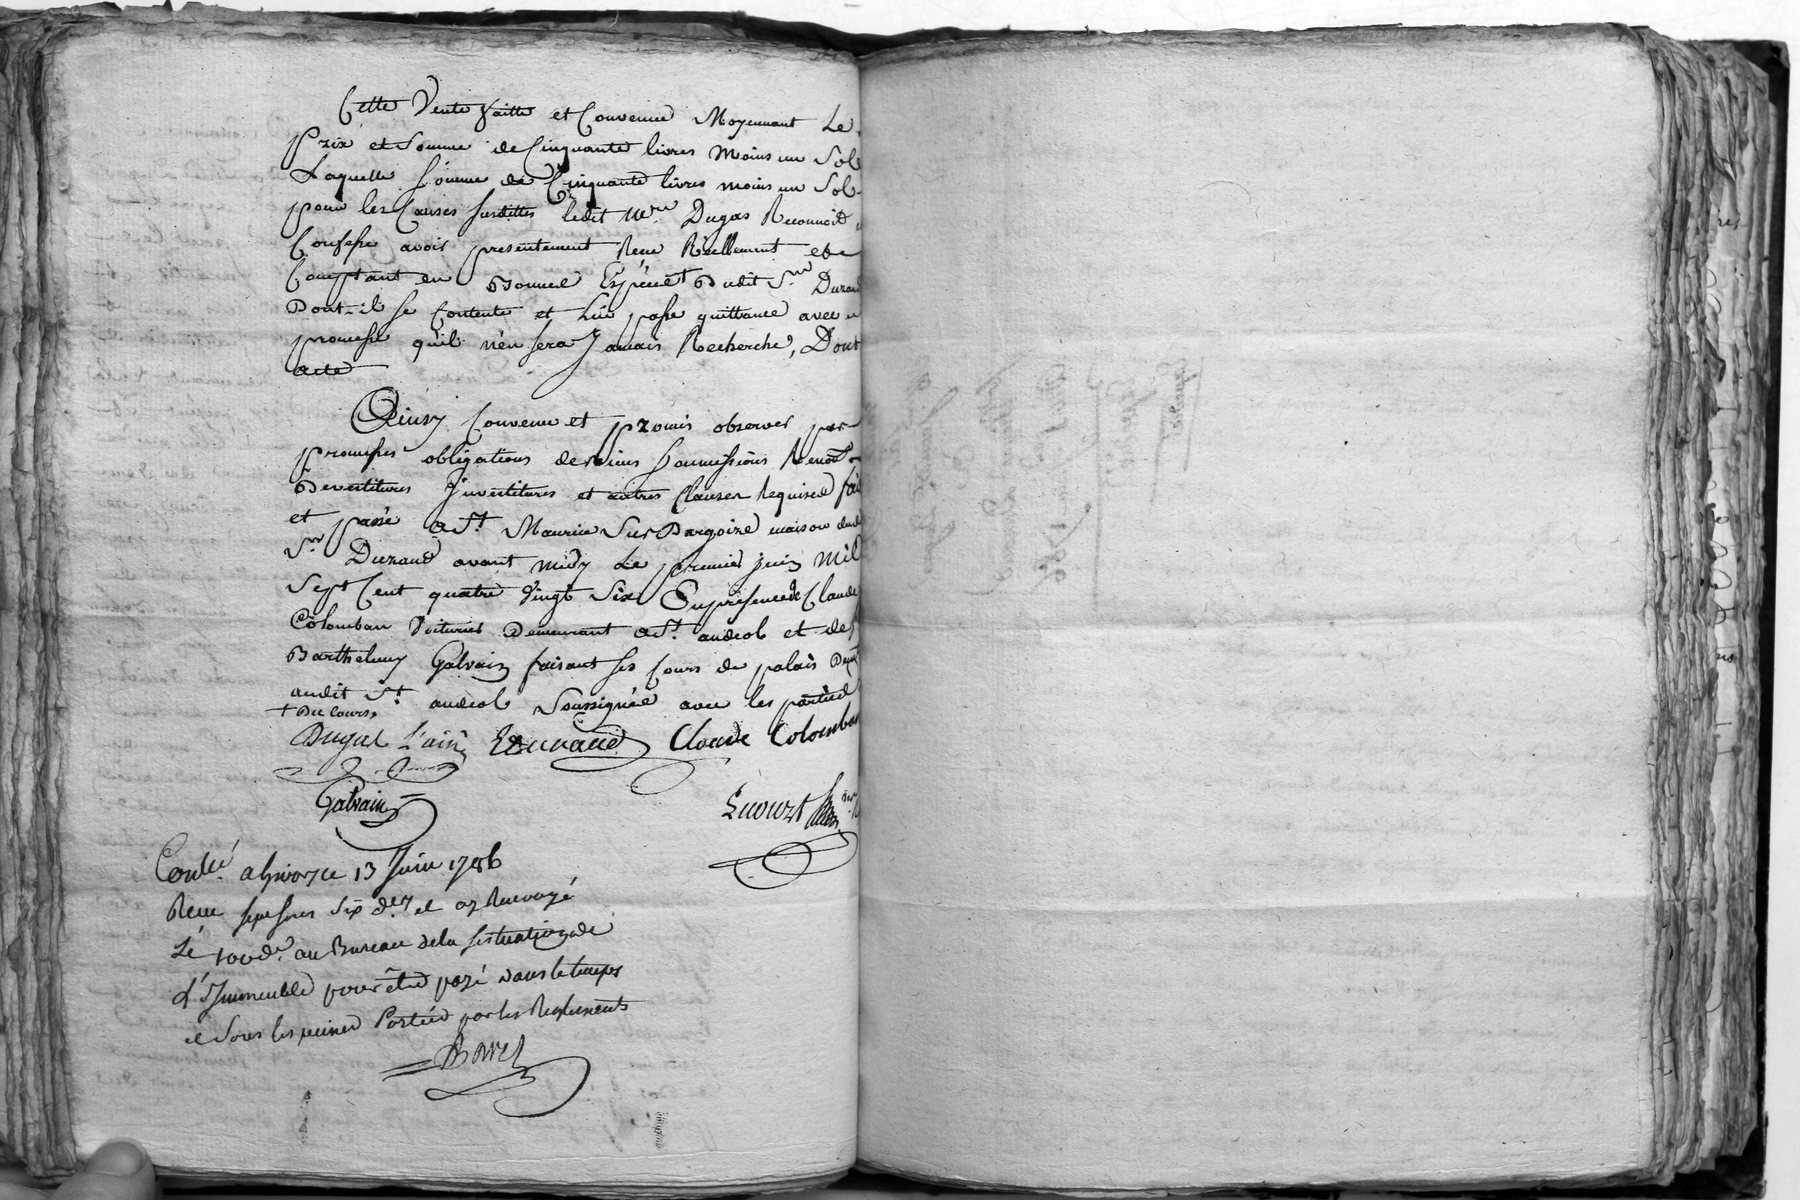 Cette Vente faitte et Convenue Moyennant Le
prix et Somme de Cinquante livres moins un Sol
Laquelle somme de Cinquante livres moins un Sol
pour les Causes susdittes ledit Mre Dugas Reconnoit
Confesse avoir presentement Reçu Réellement et
Comptant en Bonnes Espèces Dudit Sr Durand
Dont-il se Contente et Lui passe quittance avec
promesse qu'il n'en sera Jamais Recherché, Dont
acte
Ainsy Convenu et promis observer par
promesses obligations de soumissions
Devestitures Investitures et autres Clauses Requises fait
et passé a St Maurice Sur Dargoire maison dudit
Sr Durand avant midy Le premier juin mil
Sept Cent quatre Vingt Six En présence de Claude
Colomban Voiturier Demeurant a St andeol et de
Barthelemy Galvain faisant ses Cours de palais
audit St andeol Soussignés avec les parties
+ Du Cours
Dugas L'ainé Durand Claude Colomban
Galvain
Conllé a givors ce 13 Juin 1786
Reçu sept sous Six ders et ay Renvoyé
Le 100e dr au Bureau de la
d'Immeuble pour être payé dans le temps
et Sous les peines Portées par les Reglements